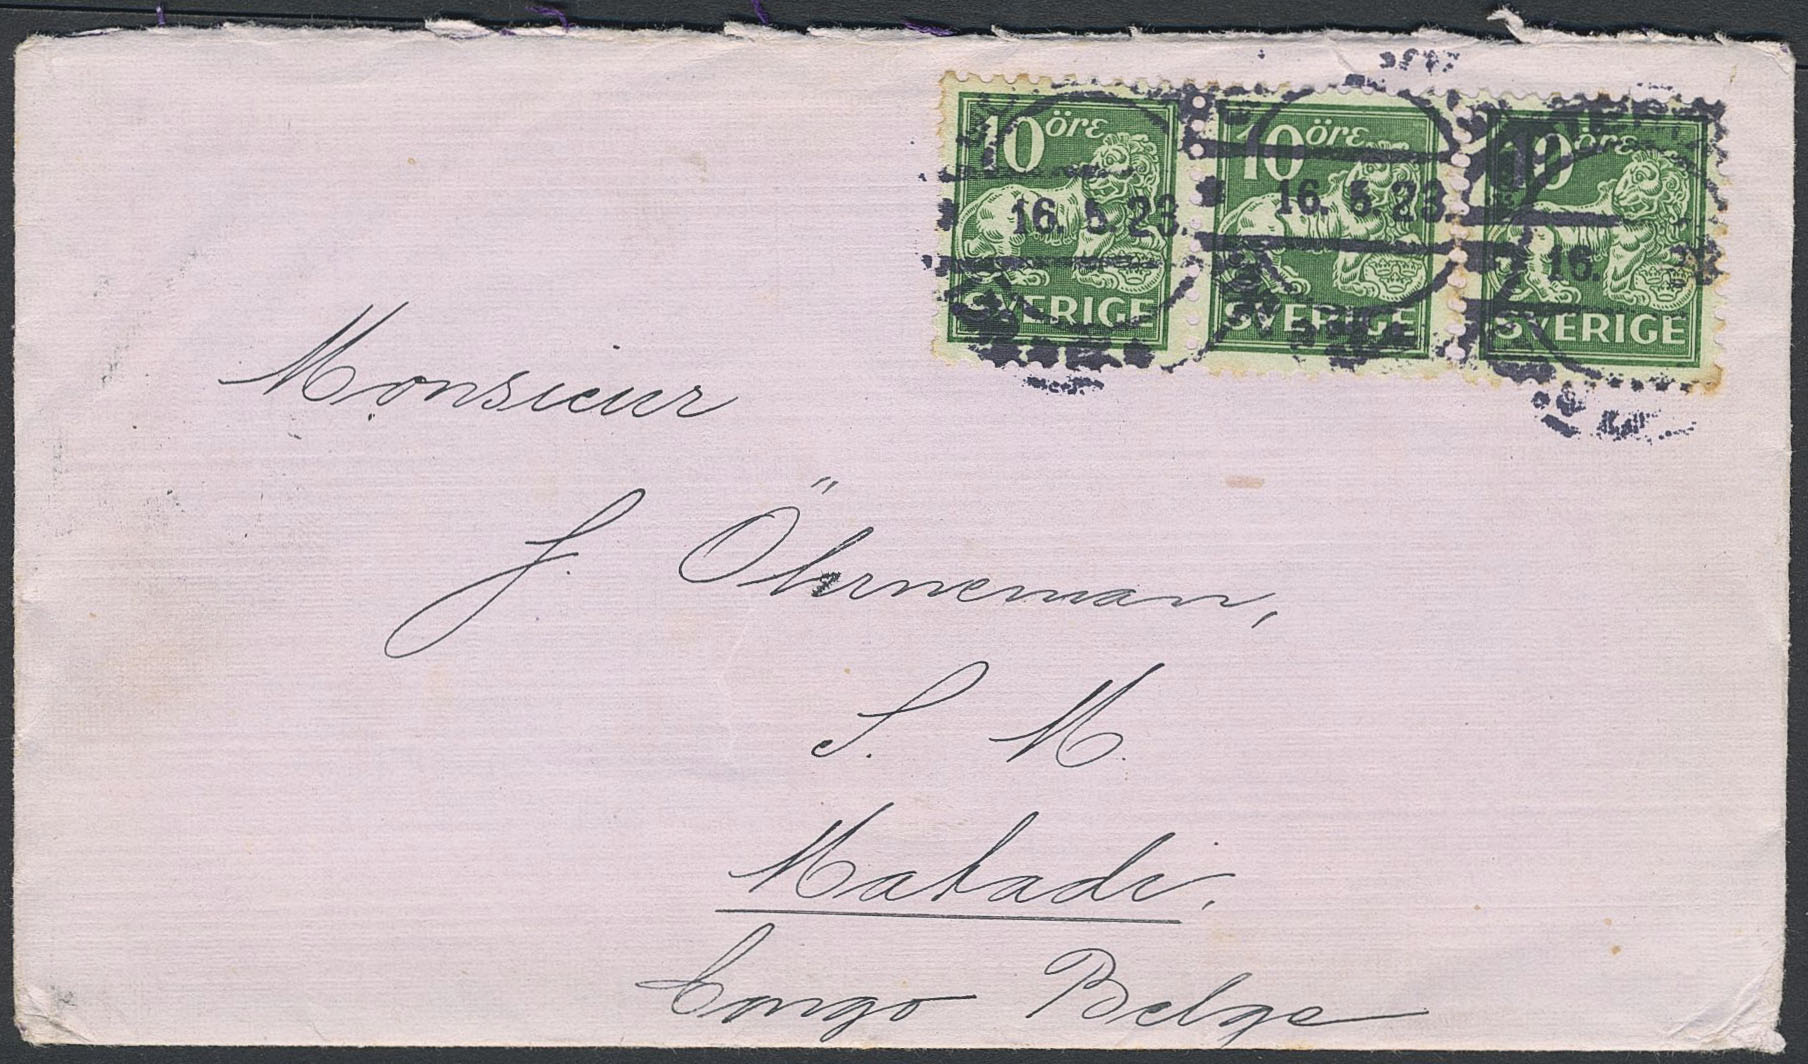 10 öre 10 öre 10 öre
16. 5. 23. 16. 5 23. 16.
SVERIGE SVERIGE SVERIGE
Monsieur
J. Öhrneman,
S. M.
Matadi.
Congo Belge